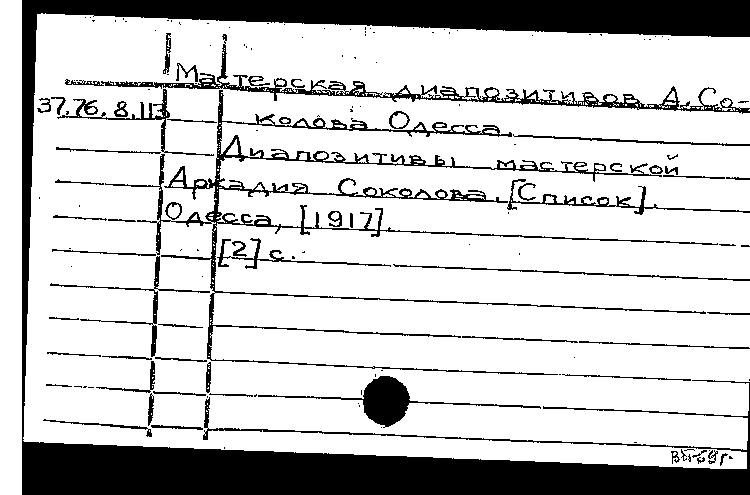 Мастерская диапозитивов А. Со-
37.76.8.113 колова Одесса.
Диапозитивы мастерской
Аркадия Соколова. [Список].
Одесса, [1917].
[2] с.